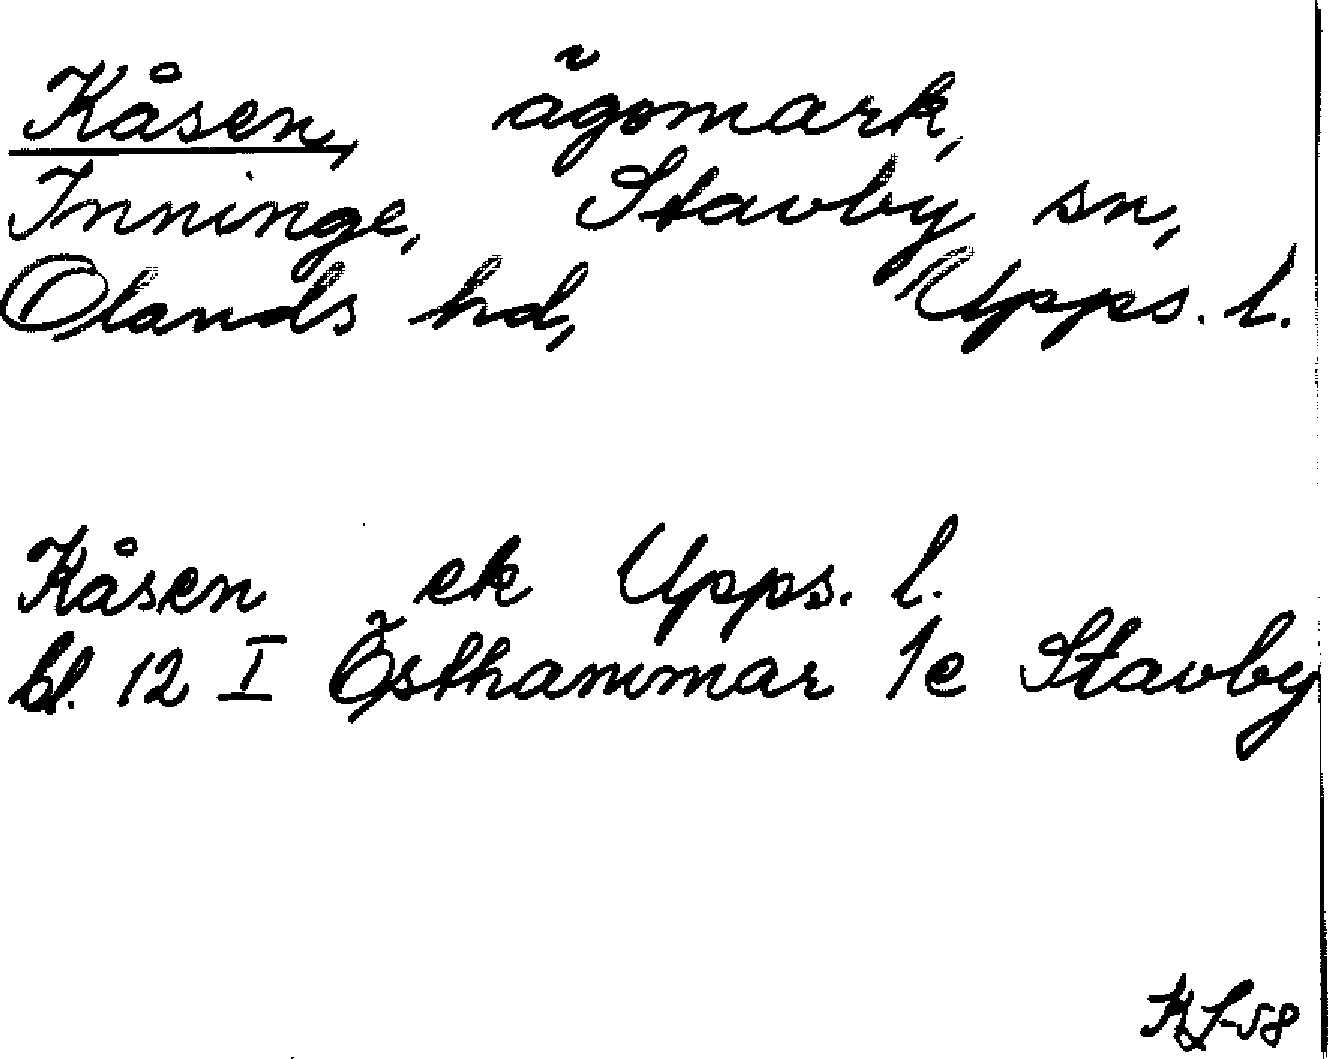 Kåsen, ägomark,
Inninge, Stavby sn,
Olands hd, Upps. l.
Kåsen ek Upps. l.
bl. 12 I Östhammar 1e Stavby